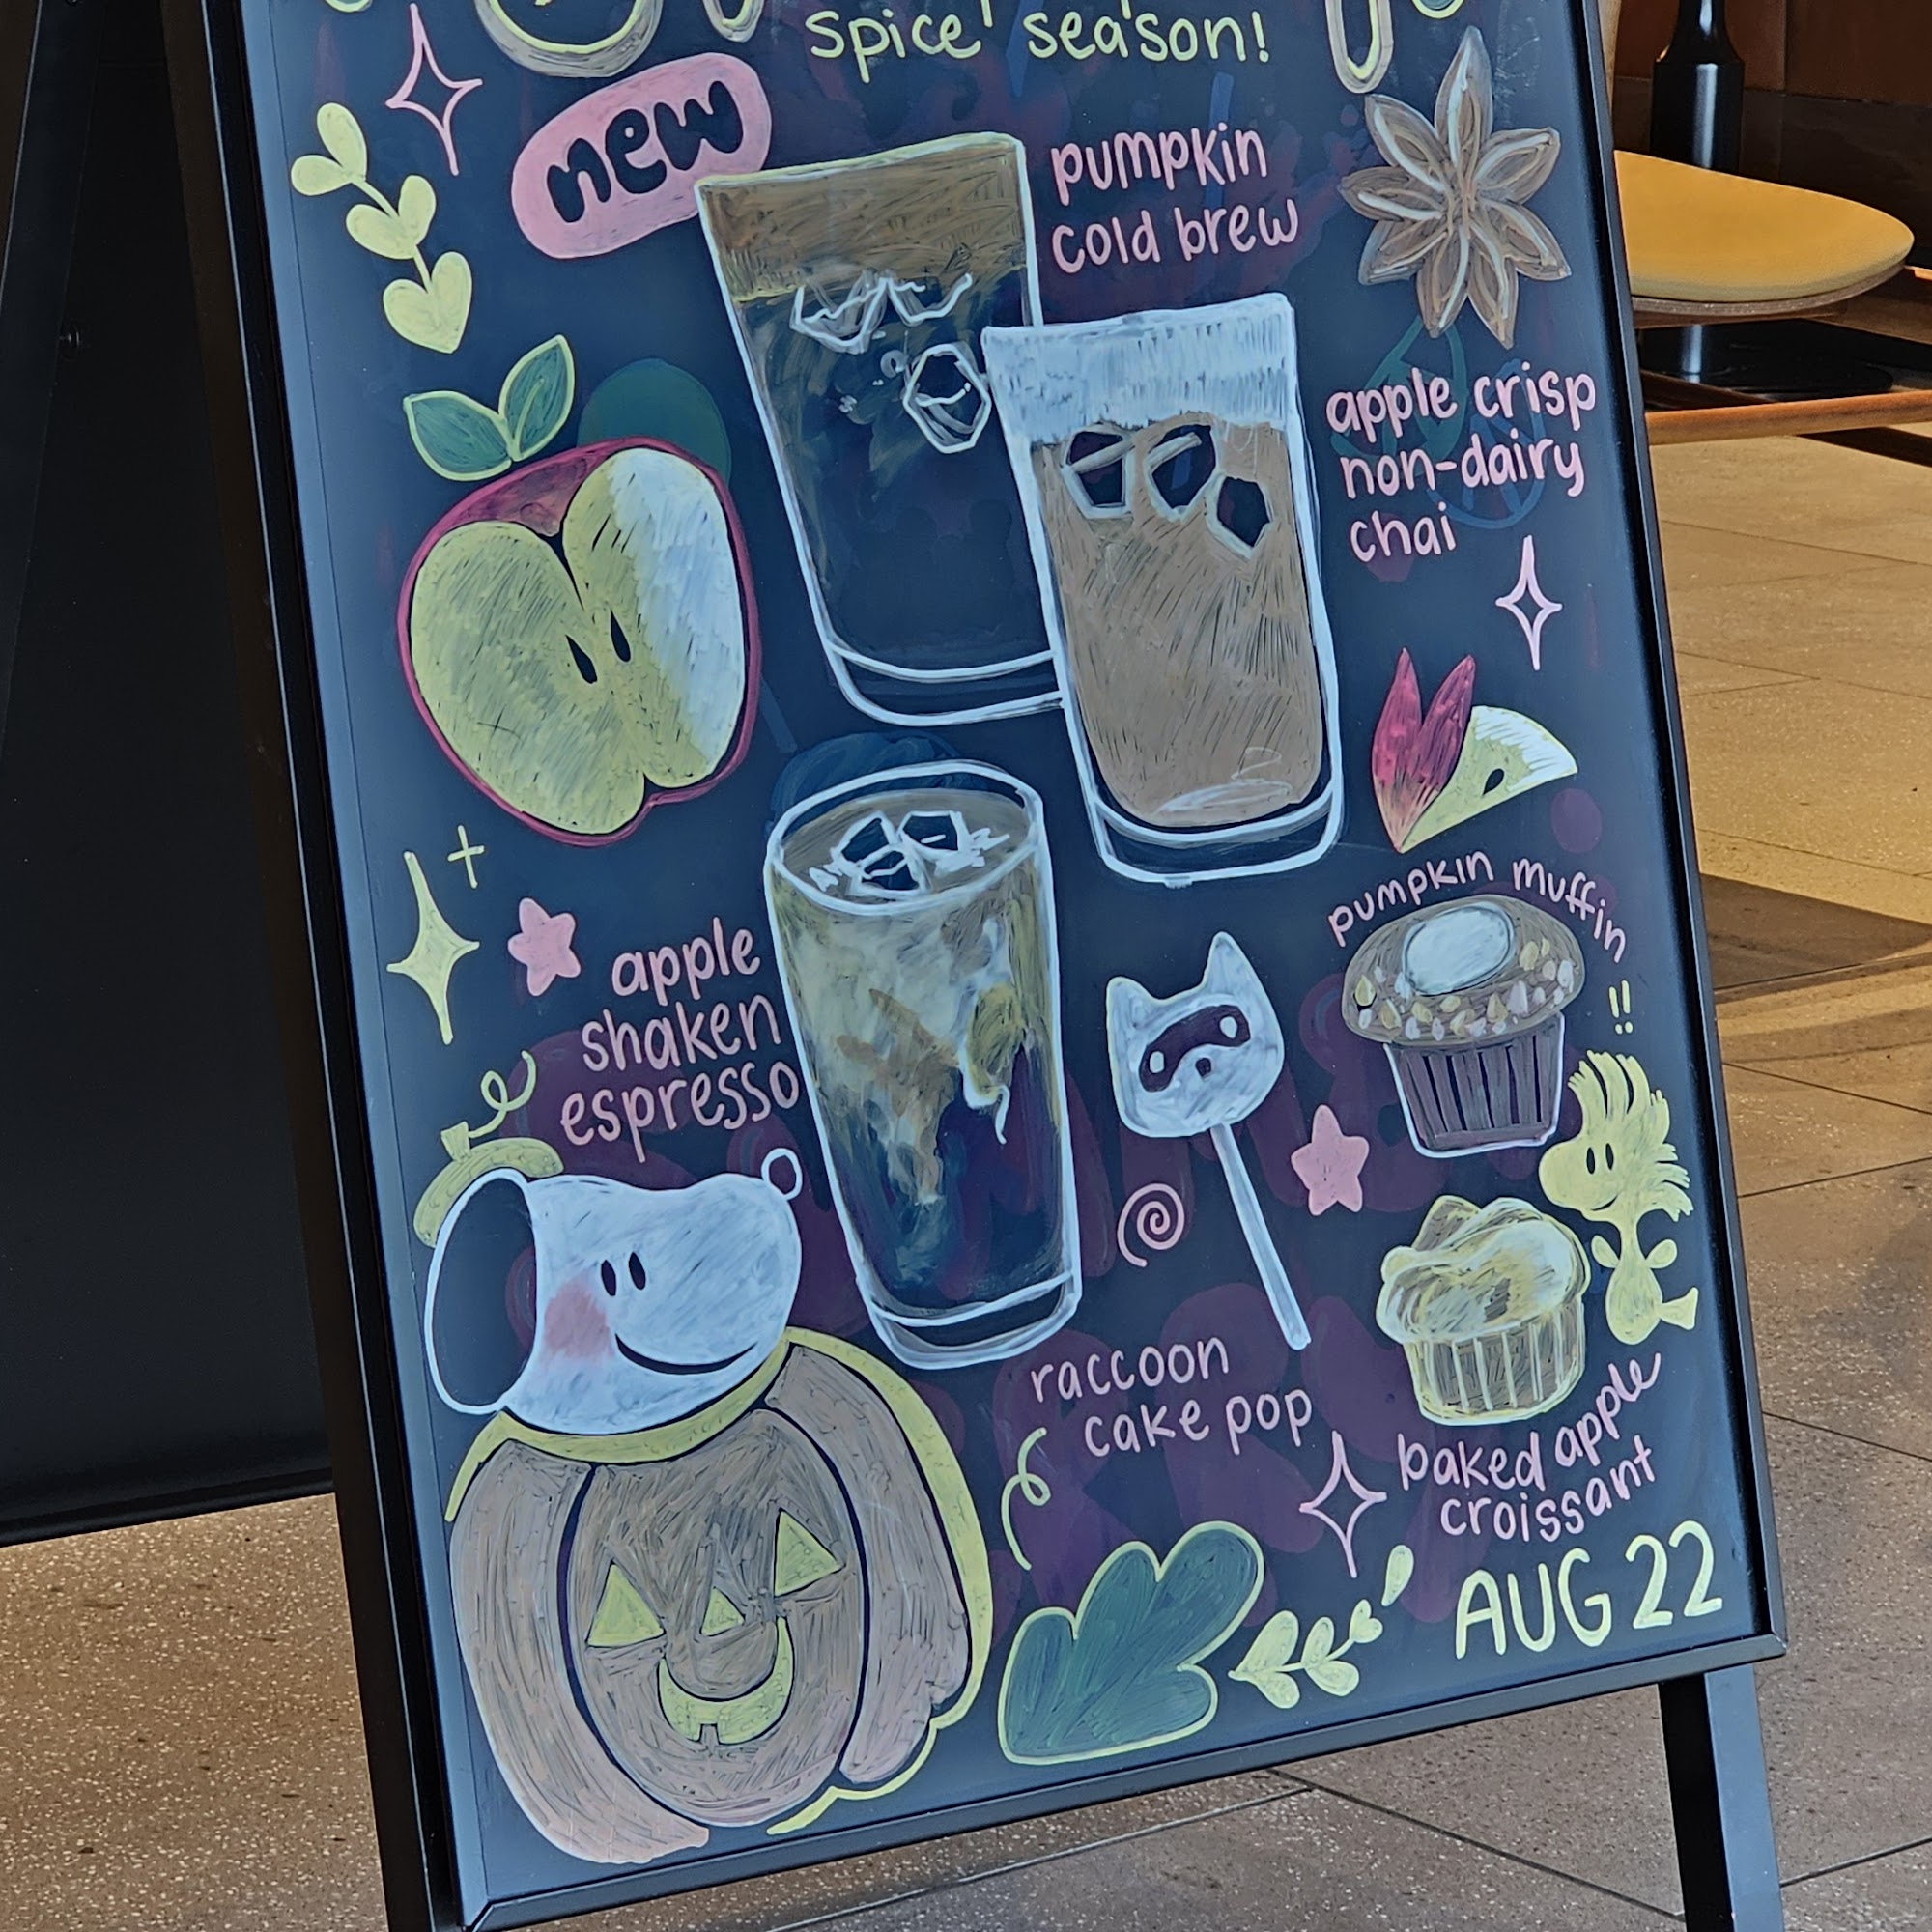 spice season!
new
pumpkin
cold brew
apple crisp
non-dairy
chai
pumpkin muffin
!!
apple
shaken
espresso
raccoon
cake pop
baked apple
croissant
AUG 22